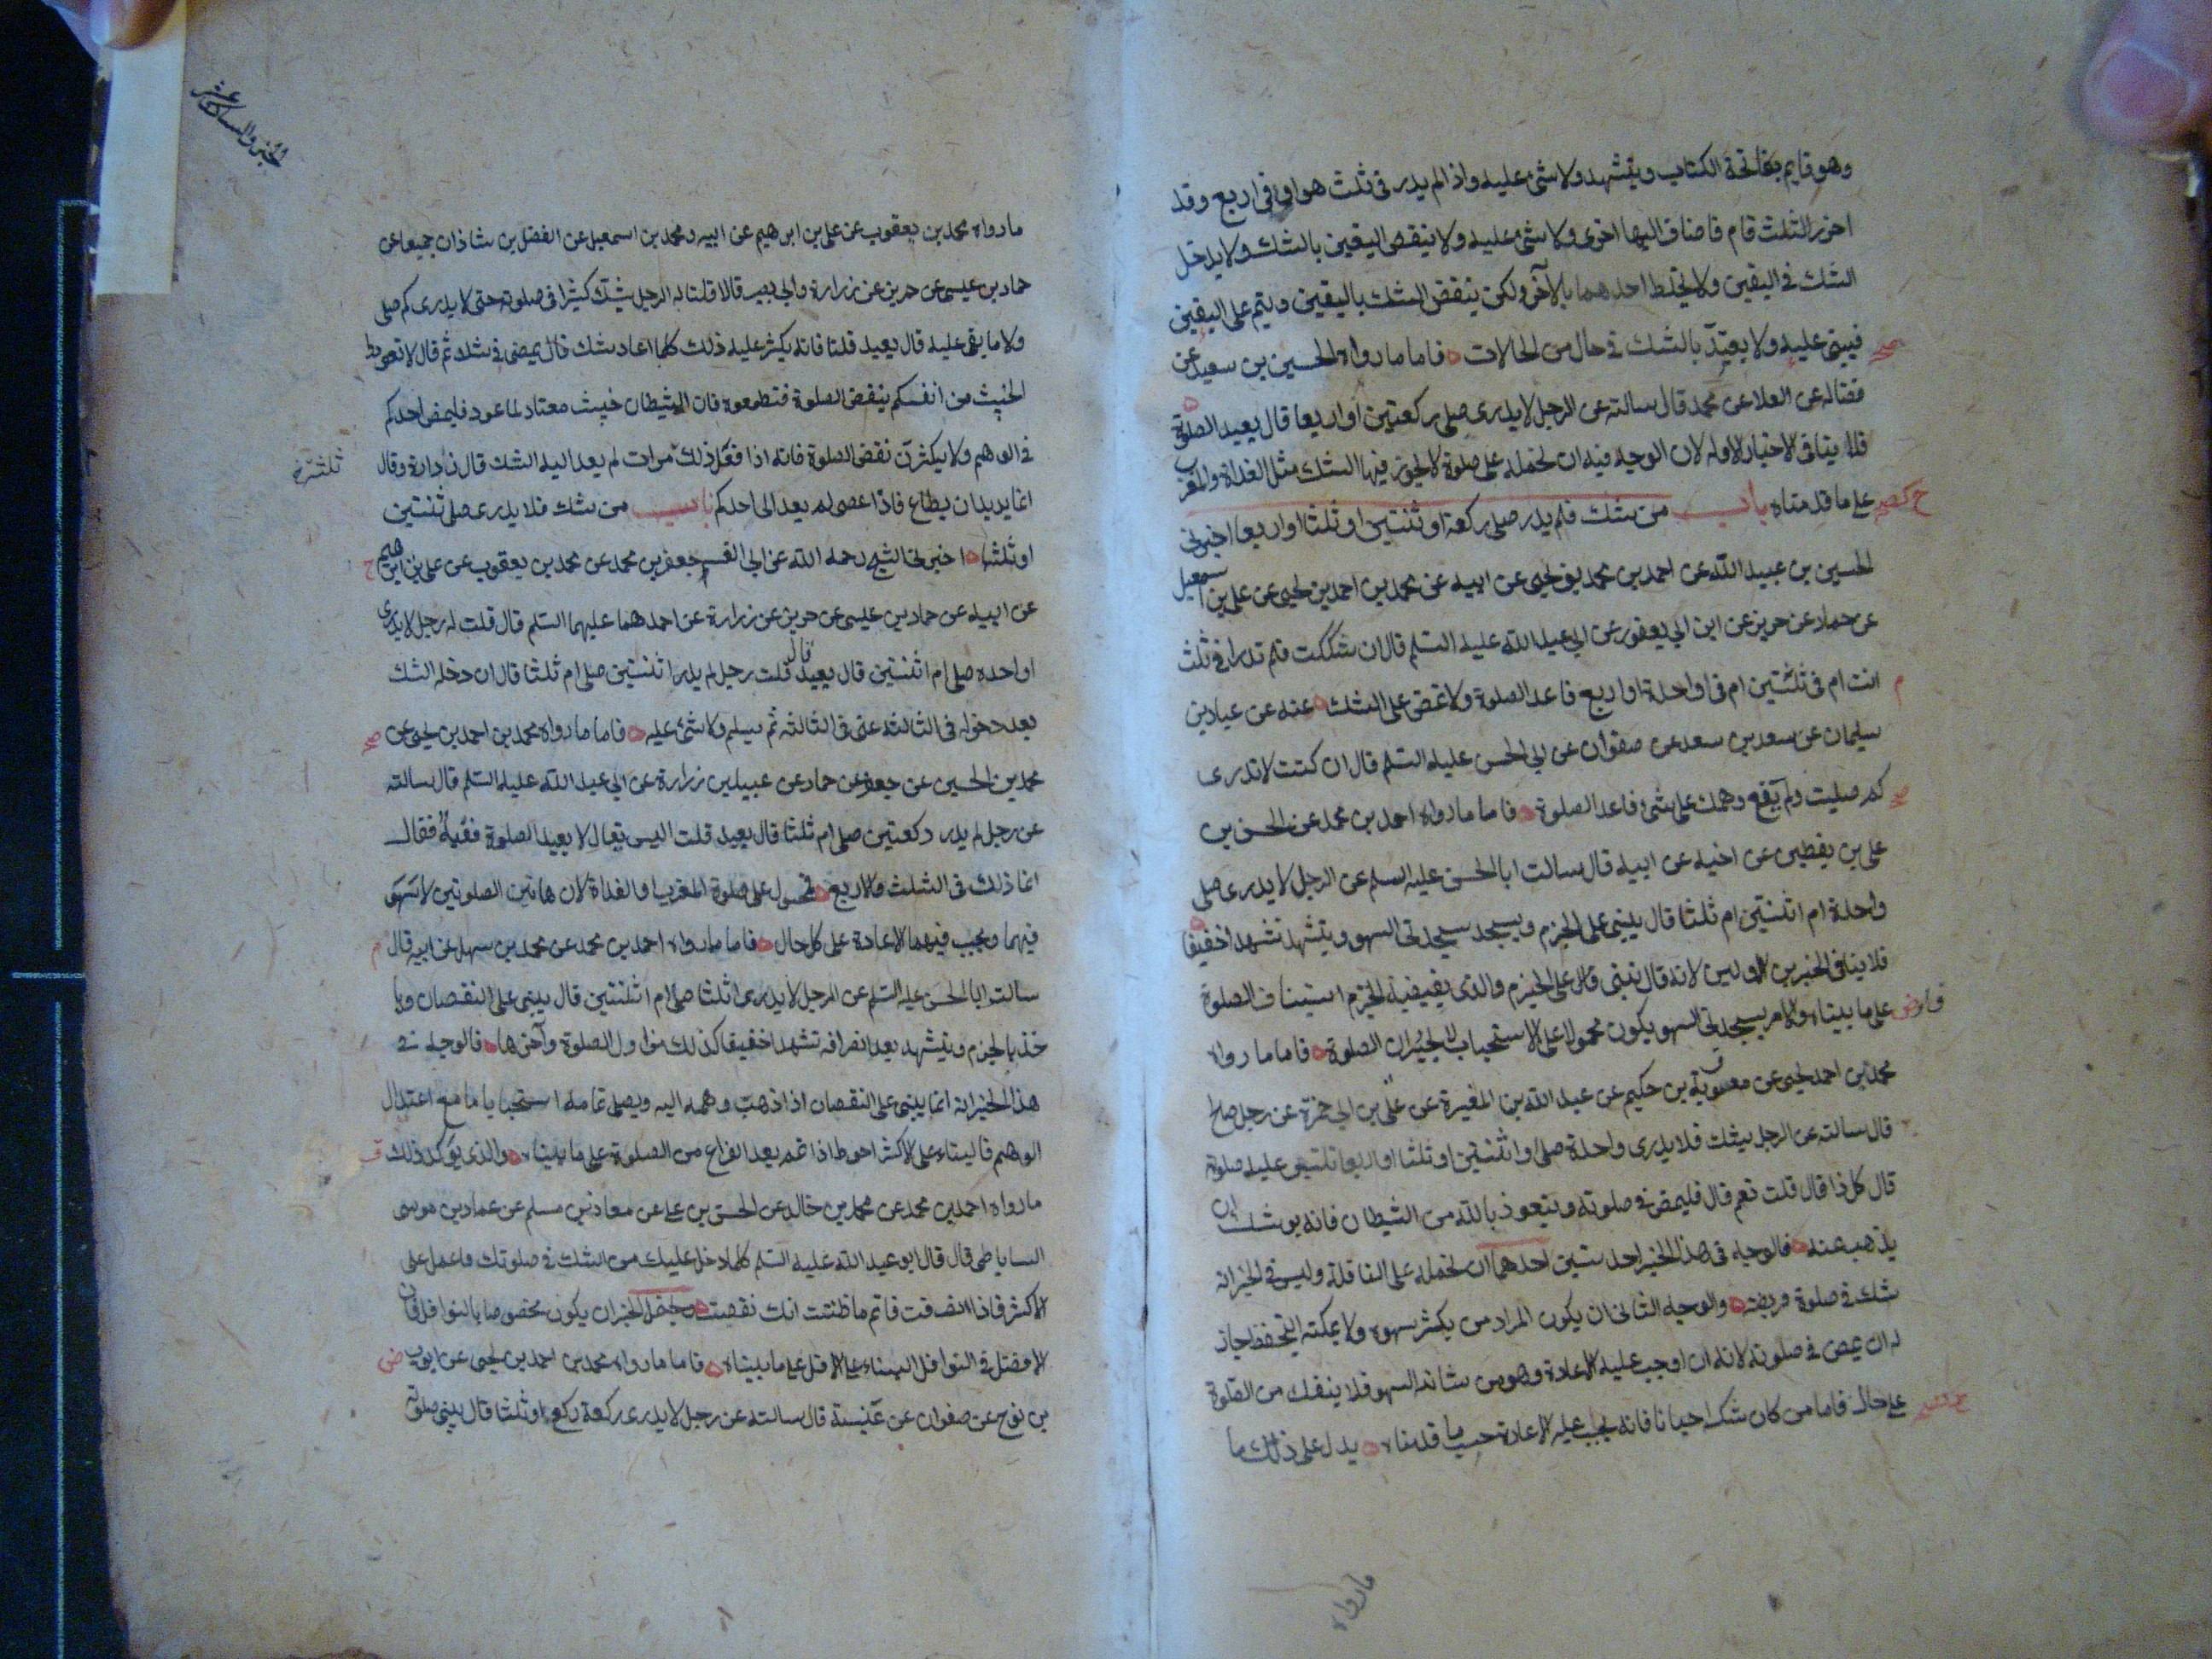 وهو قايم بفاتحة الكتاب ويتشهد ولا شئ عليه واذا لم يدر في ثلث هو او في اربع وقد
احرز الثلث قام فاضاف اليها اخرى ولا شئ عليه ولا ينقض اليقين بالشك ولا يدخل
الشك في اليقين ولا يخلط احدهما بالآخر ولكن ينقض الشك باليقين ويتم على اليقين
فيبنى عليه ولا يعتدّ بالشك في حال من الحالات فاما ما رواه الحسين بن سعيد عن
فضاله عن العلا عن محمد قال سالته عن الرجل لا يدرى صلى ركعتين او اربعا قال يعيد الصلوة
فلا ينافى الاخبار الاوله لان الوجه فيه ان نحمله على صلوة لا يجوز فيها الشك مثل الغداة والمغرب
على ما قدمناه باب من شك فلم يدر صلى ركعة او ثنتين او ثلثا او اربعا اخبرنى
الحسين بن عبيد الله عن احمد بن محمد بن يحيى عن ابيه عن محمد بن احمد بن يحيى عن على بن اسمعيل
عن حماد عن حريز عن ابن ابي يعفور عن ابي عبد الله عليه السلم قال ان شككت فلم تدر افى ثلث
انت ام فى ثنتين ام فى واحدة او اربع فاعد الصلوة ولا تمض على الشك عنه عن عباد بن
سليمان عن سعد بن سعد عن صفوان عن ابي الحسن عليه السلم قال ان كنت لا تدرى
كم صليت ولم يقع وهمك على شئ فاعد الصلوة فاما ما رواه احمد بن محمد عن الحسن بن
على بن يقطين عن اخيه عن ابيه قال سالت ابا الحسن عليه السلم عن الرجل لا يدرى صلى
واحدة ام اثنتين ام ثلثا قال يبنى على الجزم ويسجد سجدتى السهو ويتشهد تشهدا خفيفا
فلا ينافى الخبرين الاولين لانه قال يبنى على الجزم والذى يقتضيه الجزم استيناف الصلوة
على ما بيناه والامر بسجدتى السهو يكون محمولا على الاستحباب لا لجبران الصلوة فاما ما رواه
محمد بن احمد يحيى عن معوية بن حكيم عن عبد الله بن المغيرة عن على بن ابي حمزة عن رجل صالح
قال سالته عن الرجل يشك فلا يدرى واحدة صلى او اثنتين او ثلثا او اربعا تلتبس عليه صلوته
قال كل ذا قال قلت نعم قال فليمض فى صلوته ويتعوذ بالله من الشيطان فانه يوشك ان
يذهب عنه فالوجه فى هذا الخبر احد شيئين احدهما ان نحمله على النافلة وليس فى الخبر انه
شك فى صلوة فريضة والوجه الثانى ان يكون المراد من يكثر سهوه ولا يمكنه التحفظ جاز
له ان يمضى فى صلوته لانه ان اوجب عليه الاعادة وهو من شانه السهو فلا ينفك من الصلوة
على حال فاما من كان شكه احيانا فانه يجب عليه الاعادة حسب ما قدمناه يدل على ذلك ما
ما رواه
ما رواه محمد بن يعقوب عن على بن ابرهيم عن ابيه ومحمد بن اسمعيل عن الفضل بن شاذان جميعا عن
حماد بن عيسى عن حريز عن زرارة وابي بصير قالا قلنا له الرجل يشكّ كثيرا فى صلوته حتى لا يدرى كم صلى
ولا ما بقى عليه قال يعيد قلنا فانه يكثر عليه ذلك كلما اعاد شك قال يمضى فى شكه ثم قال لا تعودوا
الخبيث من انفسكم بنقض الصلوة فتطمعوه فان الشيطان خبيث معتاد لما عود فليمض احدكم
فى الوهم ولا يكثرنّ نقض الصلوة فانه اذا فعل ذلك مرات لم يعد اليه الشك قال زرارة وقال
انما يريد ان يطاع فاذا عصى لم يعد الى احدكم باب من شك فلا يدرى صلى ثنتين
او ثلثا اخبرنى الشيخ رحمه الله عن ابى القسم جعفر بن محمد عن محمد بن يعقوب عن على بن ابرهيم
عن ابيه عن حماد بن عيسى عن حريز عن زرارة عن احدهما عليهما السلم قال قلت له رجل لا يدرى
اواحده صلى ام اثنتين قال يعيد قال قلت رجل لم يدر اثنتين صلى ام ثلثا قال ان دخله الشك
بعد دخوله فى الثالثة مضى فى الثالثة ثم يسلم ولا شئ عليه فاما ما رواه محمد بن احمد بن يحيى عن
محمد بن الحسين عن جعفر عن حماد عن عبيد بن زرارة عن ابي عبد الله عليه السلم قال سالته
عن رجل لم يدر ركعتين صلى ام ثلثا قال يعيد قلت اليس يقال لا يعيد الصلوة فقيه فقال
انما ذلك فى الثلث والاربع محمول على صلوة المغرب او الغداة لان هاتين الصلوتين لا سهو
فيهما ويجب فيهما الاعادة على كل حال فاما ما رواه احمد بن محمد عن محمد بن سهل عن ابيه قال
سالت ابا الحسن عليه السلم عن الرجل لا يدرى اثلثا صلى ام اثنتين قال يبنى على النقصان ويا
خذ بالجزم ويتشهد بعد انصرافه تشهدا خفيفا كذلك فى اول الصلوة وآخرها فالوجه فى
هذا الخبر انه انما يبنى على النقصان اذا ذهب وهمه اليه ويصلى تمامه استحبابا ما مع اعتدال
الوهم فالبناء على الاكثر احوط اذا تمم بعد الفراغ من الصلوة على ما بيناه والذى يؤكد ذلك
ما رواه احمد بن محمد عن محمد بن خالد عن الحسن بن على عن معاذ بن مسلم عن عمار بن موسى
الساباطى قال قال ابو عبد الله عليه السلم كلما دخل عليك من الشك فى صلوتك فاعمل على
الاكثر فاذا انصرفت فاتم ما ظننت انك نقصت ويحتمل الخبر ان يكون مخصوصا بالنوافل فان
الافضل فى النوافل البناء على الاقل على ما بيناه فاما ما رواه محمد بن احمد بن يحيى عن ايوب
بن نوح عن صفوان عن عنبسة قال سالته عن رجل لا يدرى ركعة ركع او ثلثا قال يبنى صلوته